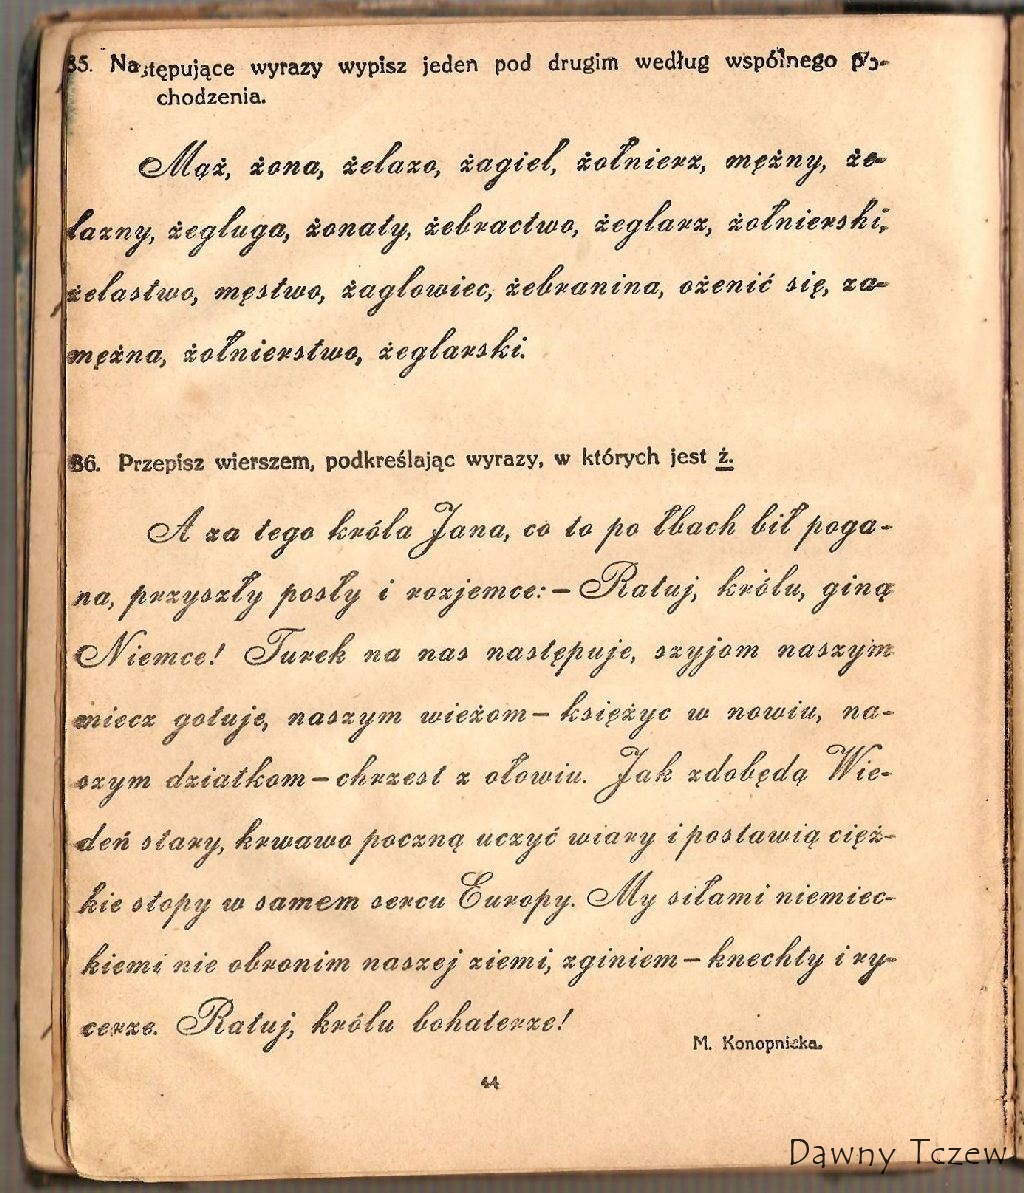 85. Następujące wyrazy wypisz jeden pod drugim według wspólnego po-
chodzenia.
Mąż, żona, żelazo, żagiel, żołnierz, mężny, że-
lazny, żegluga, żonaty, żebractwo, żeglarz, żołnierski,
żelastwo, męstwo, żaglowiec, żebranina, ożenić się, za-
mężna, żołnierstwo, żeglarski.
86. Przepisz wierszem, podkreślając wyrazy, w których jest ż.
A za tego króla Jana, co to po łbach bił poga-
na, przyszły posły i rozjemce: — Ratuj, królu, giną
Niemce! Turek na nas następuje, szyjom naszym
miecz gotuje, naszym wieżom — księżyc w nowiu, na-
szym dziatkom — chrzest z ołowiu. Jak zdobędą Wie-
deń stary, krwawo poczną uczyć wiary i postawią cięż-
kie stopy w samem sercu Europy. My siłami niemiec-
kiemi nie obronim naszej ziemi, zginiem — knechty i ry-
cerze. Ratuj, królu bohaterze!
M. Konopnicka.
44
Dawny Tczew